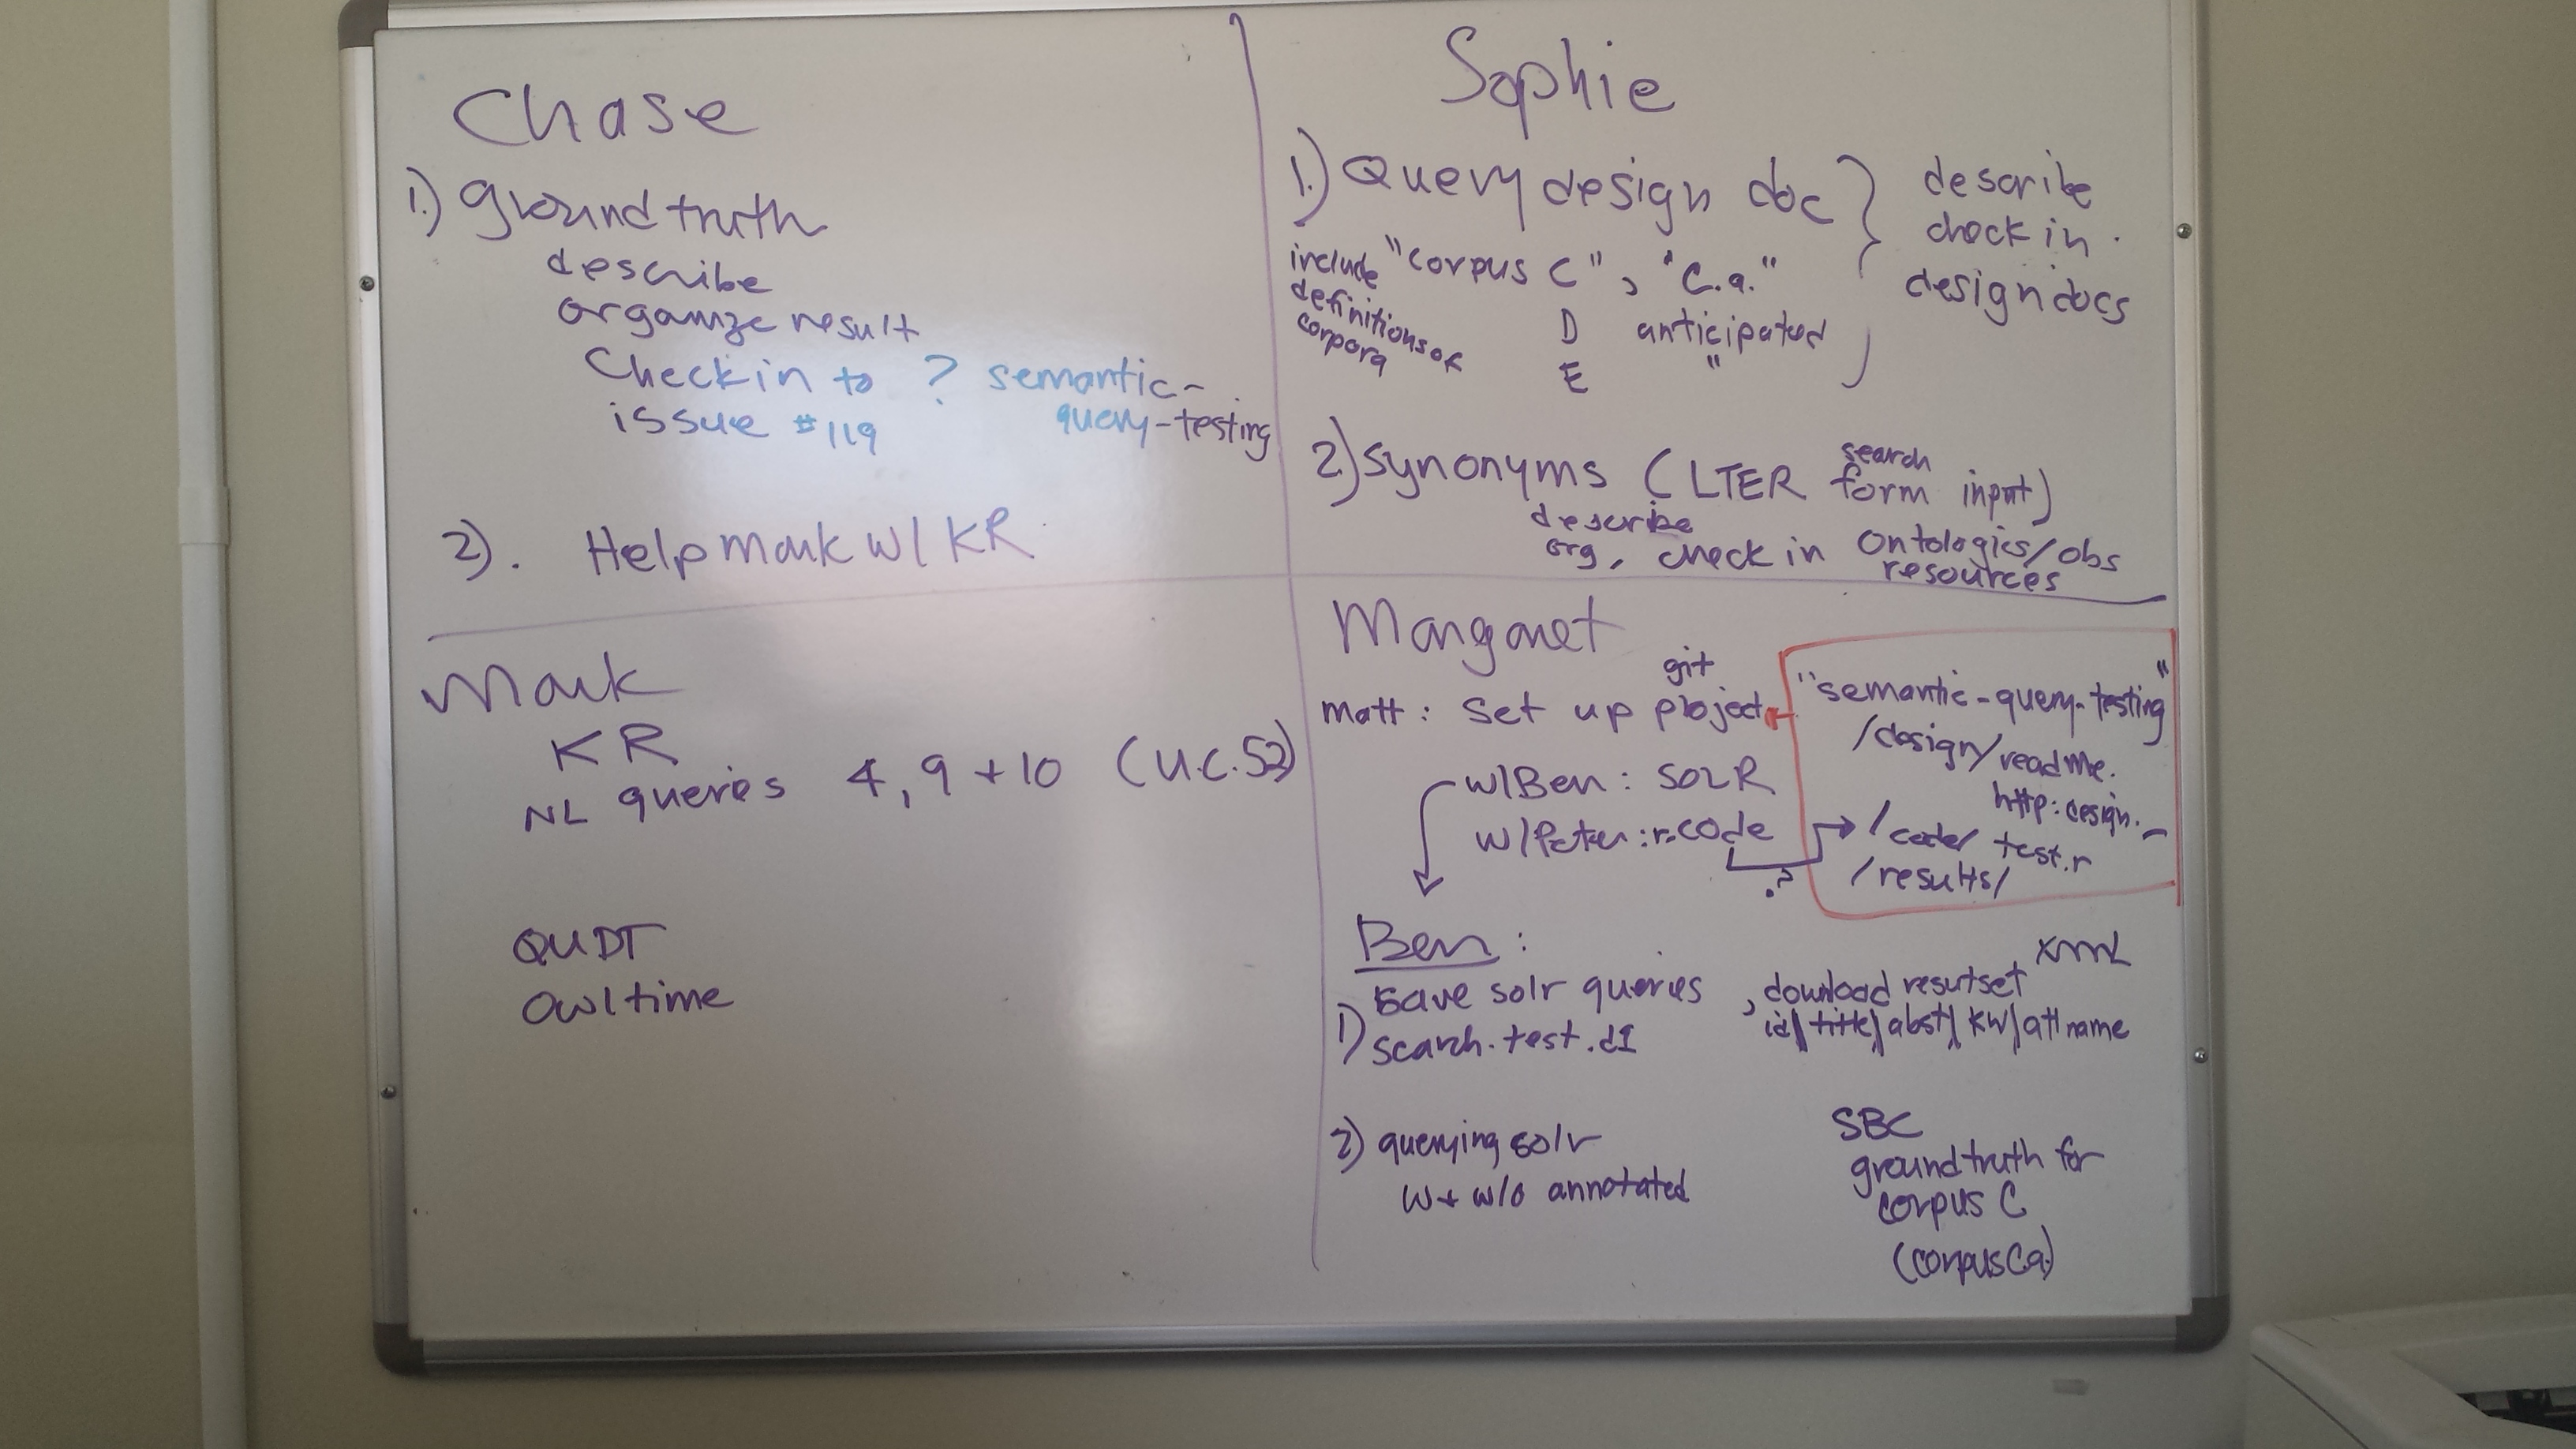 Chase
1.) ground truth
describe
organize result
Checkin to ? semantic-
issue #119 query-testing
2). Help Mark w/ KR
Sophie
1.) Query design doc } describe
check in
design docs
include "corpus C", "C.a."
definitions of
corpora
D anticipated
E "
2) synonyms (LTER search form input)
describe
org, check in Ontologies/obs
resources
Mark
KR
NL queries 4, 9 + 10 (U.C. 52)
QUDT
Owl time
Margaret
Matt: Set up git project
w/Ben: SOLR
w/Peter: r-code
?
"semantic-query-testing"
/design/readme.
http:design.
/code/ test.r
/results/
Ben:
1) save solr queries, download resutset XML
search.test.d1 id/title/abst/kw/att name
2) querying solr
w + w/o annotated
SBC
ground truth for
corpus C
(corpus Ca)